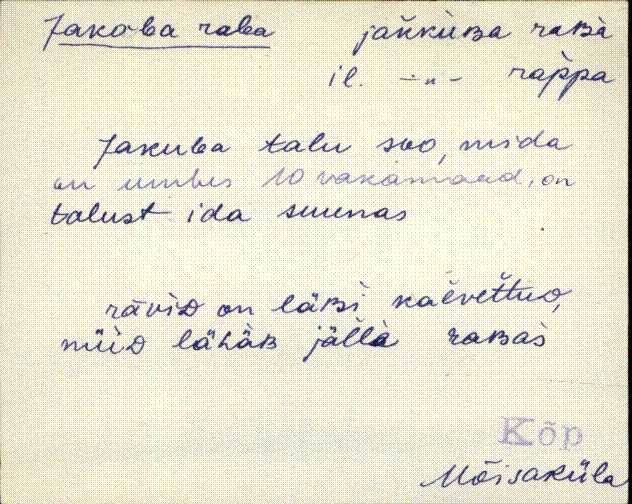 Jakoba raba jakkuʙa raʙa
il. -„- rappa
Jakuba talu soo, mida
on umbes 10 vakamaad, on
talust ida suunas
ràvìᴅ on läʙ̀i kaèvet̆tuᴅ,
nüiᴅ lähäʙ jälla raʙas
Kõp
Mõisaküla